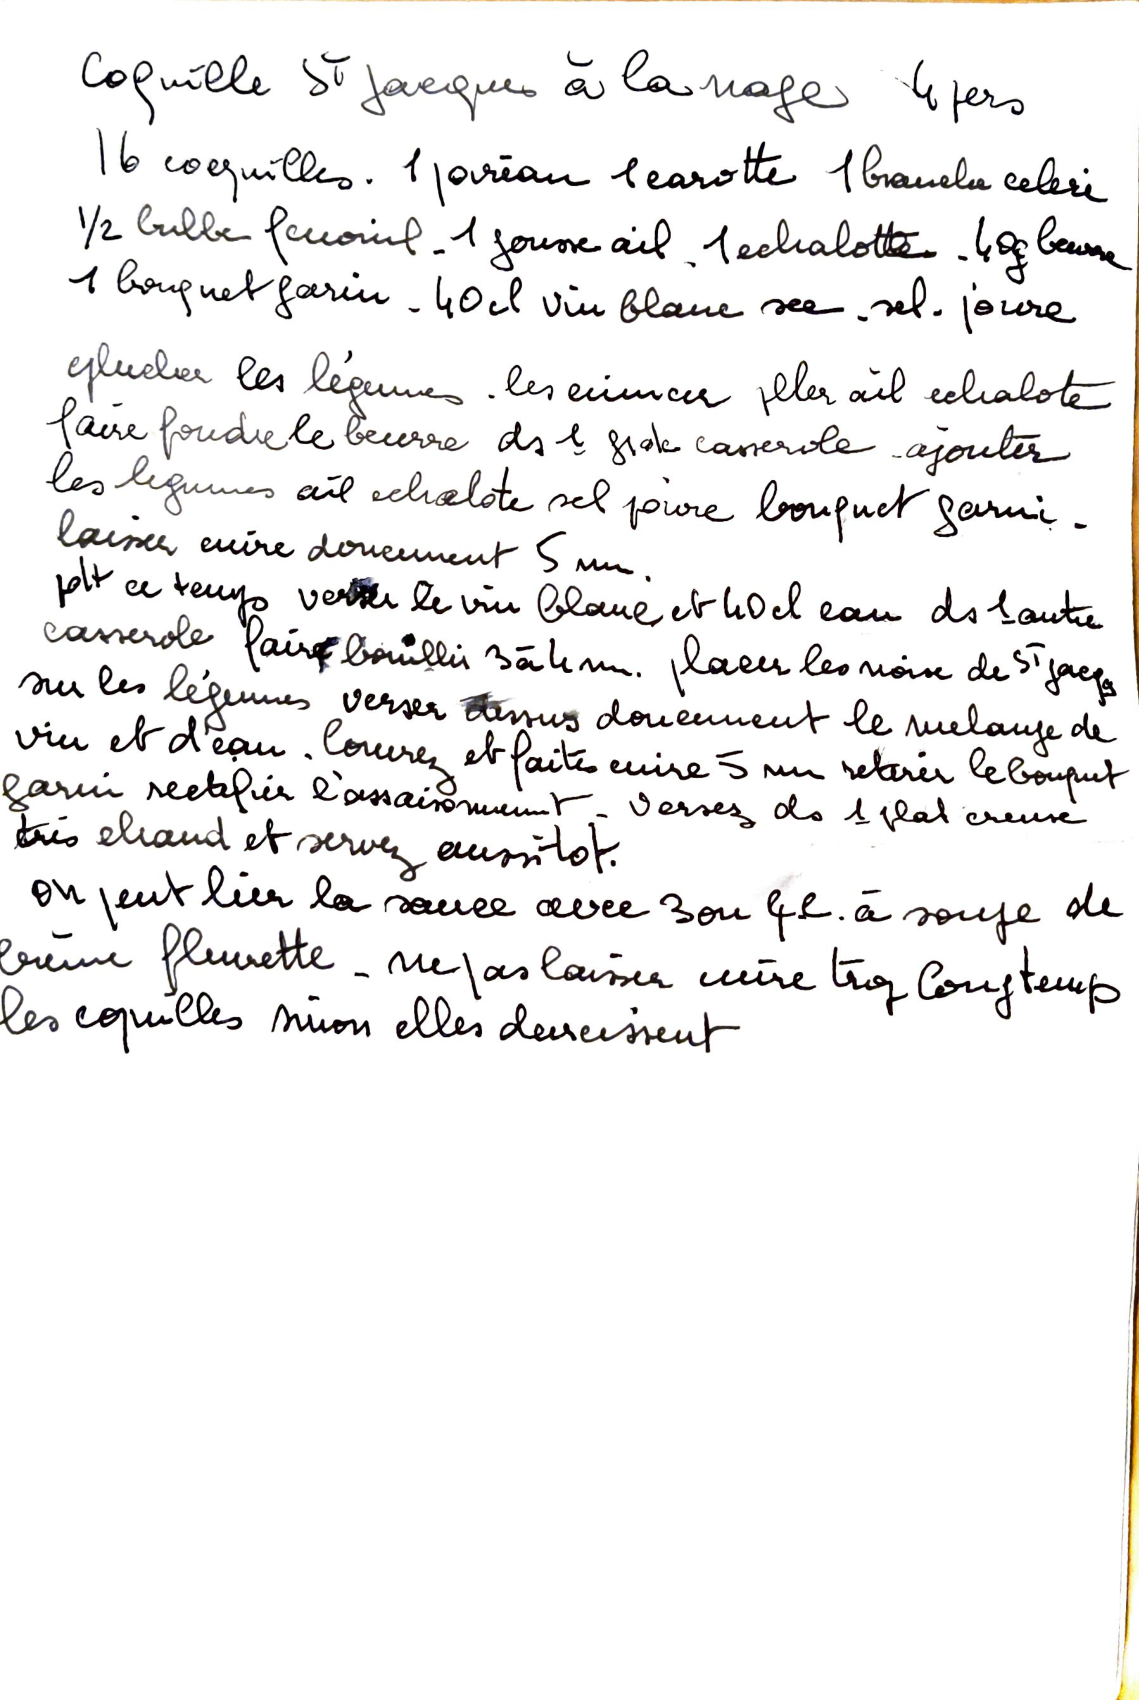 Coquille St Jacques à la nage 4 pers
16 coquilles. 1 poireau 1 carotte 1 branche celeri
1/2 bulbe fenouil - 1 gousse ail - 1 echalotte - 40g beurre
1 bouquet garni - 40cl vin blanc sec - sel - poivre
eplucher les légumes . les emincer piler ail echalote
faire fondre le beurre ds 1 gde casserole - ajouter
les legumes ail echalote sel poivre bouquet garni -
laisser cuire doucement 5 mn.
pdt ce temps verser le vin blanc et 40cl eau ds 1 autre
casserole faire bouillir 3 à 4 mn. placer les noix de St Jacqs
sur les légumes verser dessus doucement le melange de
vin et d'eau . Couvrez et faites cuire 5 mn retirer le bouquet
garni rectifier l'assaisonnement - versez ds 1 plat creux
très chaud et servez aussitôt.
on peut lier la sauce avec 3 ou 4 c. à soupe de
crème fleurette - ne pas laisser cuire trop longtemps
les coquilles sinon elles durcissent